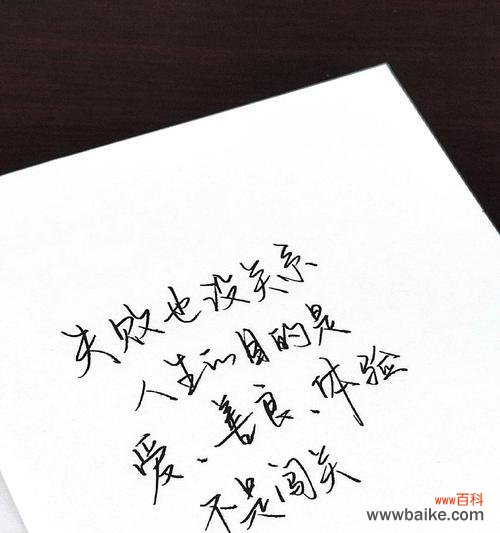 失败也没关系
人生的目的是
爱、善良、体验
不是闯关
www百科
www.baike.com